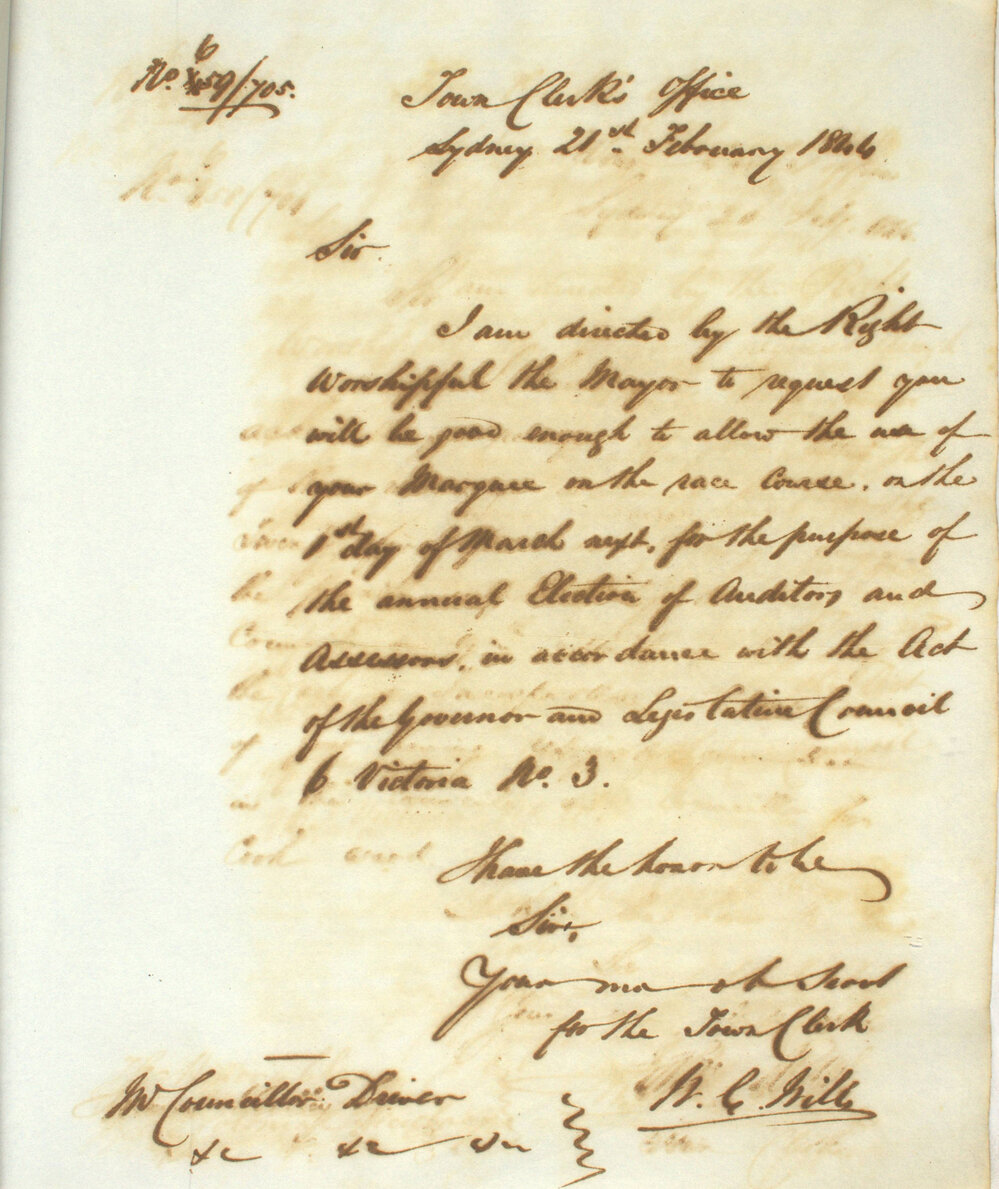 No. 6
459/705.
Town Clerk's Office
Sydney 21st February 1844
Sir.
I am directed by the Right
Worshipful the Mayor to request you
will be good enough to allow the use of
your Marquee on the race Course, on the
1st day of March next, for the purpose of
the annual Election of Auditors and
Assessors, in accordance with the Act
of the Governor and Legislative Council
6 Victoria No. 3.
I have the honor to be
Sir,
Your mo ob Servt
for the Town Clerk
W. C. Wills
Mr Councillor Driver
&c &c &c